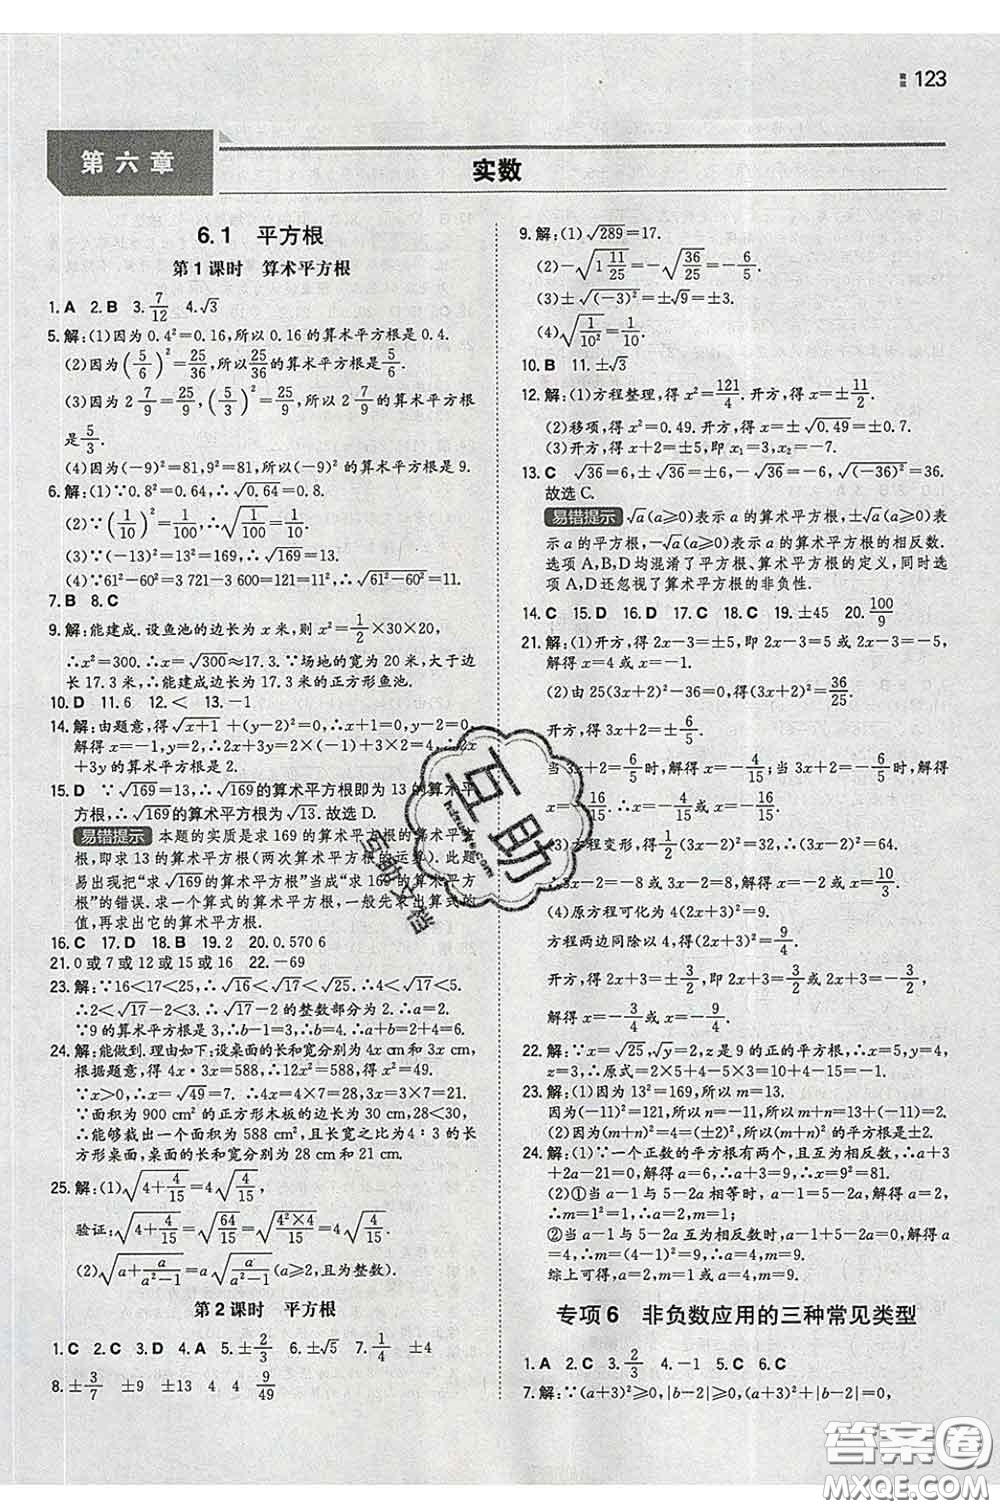 123
第六章
实数
6.1 平方根
第1课时 算术平方根
1.A 2.B 3.7/12 4.√3
5.解:(1)因为0.4²=0.16,所以0.16的算术平方根是0.4.
(2)因为(5/6)²=25/36,所以25/36的算术平方根是5/6.
(3)因为2 7/9=25/9,(5/3)²=25/9,所以2 7/9的算术平方根
是5/3.
(4)因为(-9)²=81,9²=81,所以(-9)²的算术平方根是9.
6.解:(1)∵0.8²=0.64,∴√0.64=0.8.
(2)∵(1/10)²=1/100,∴√(1/100)=1/10.
(3)∵(-13)²=13²=169,∴√169=13.
(4)∵61²-60²=3 721-3 600=121=11²,∴√(61²-60²)=11.
7.B 8.C
9.解:能建成.设鱼池的边长为x米,则x²=1/2×30×20,
∴x²=300.∴x=√300≈17.3.∵场地的宽为20米,大于边
长17.3米,∴能建成边长为17.3米的正方形鱼池.
10.D 11.6 12.< 13.-1
14.解:由题意,得√(x+1)+(y-2)²=0,∴x+1=0,y-2=0,
解得x=-1,y=2,∴2x+3y=-2+6=4,∴2x
+3y的算术平方根是2.
15.D ∵√169=13,∴√169的算术平方根即为13的算术平
方根,∴√169的算术平方根为√13.故选D.
易错提示 本题的实质是求169的算术平方根的算术平方
根,即求13的算术平方根(两次算术平方根的运算).此题
易出现把“求√169的算术平方根”当成“求169的算术平方根”
的错误.求一个算式的算术平方根,一般先求出算式的
值,再求出它的算术平方根.
16.C 17.D 18.B 19.2 20.0.570 6
21.0或7或12或15或16 22.-69
23.解:∵16<17<25,∴√16<√17<√25,∴4<√17<5.
∴2<√17-2<3.∴√17-2的整数部分为2.∴a=2.
∵9的算术平方根是3,∴b-1=3,∴b=4.∴a+b=2+4=6.
24.解:能做到.理由如下:设桌面的长和宽分别为4x cm和3x cm,
根据题意,得4x·3x=588,∴12x²=588,∴x²=49.
∵x>0,∴x=√49=7.∴4x=4×7=28,3x=3×7=21.
∵面积为900 cm²的正方形木板的边长为30 cm,28<30,
∴能够裁出一个面积为588 cm²,且长宽之比为4∶3的长
方形桌面,桌面的长和宽分别为28 cm和21 cm.
25.解:(1)√(4+4/15)=4√(4/15),
验证:√(4+4/15)=√(64/15)=√(4²×4/15)=4√(4/15).
(2)√(a+a/(a²-1))=a√(a/(a²-1))(a≥2,且为整数).
第2课时 平方根
1.C 2.C 3.D 4.A 5.±2/3 6.±√5 7.1/4 ±4
8.±3/7 ±9 ±13 4 4 9/49
9.解:(1)√289=17.
(2)-√(1 11/25)=-√(36/25)=-6/5.
(3)±√(-3)²=±√9=±3.
(4)√(1/10²)=1/10.
10.B 11.±√3
12.解:(1)方程整理,得x²=121/4.开方,得x=±11/2.
(2)移项,得x²=0.49.开方,得x=±√0.49=±0.7.
(3)开方,得x+2=±5,即x₁=3,x₂=-7.
13.C √36=6,±√36=±6,-√36=-6,√(-36)²=36.
故选C.
易错提示 √a(a≥0)表示a的算术平方根,±√a(a≥0)表
示a的平方根,-√a(a≥0)表示a的算术平方根的相反数.
选项A,B,D均混淆了平方根、算术平方根的定义,同时选
项A,D还忽视了算术平方根的非负性.
14.C 15.D 16.D 17.C 18.C 19.±45 20.100/9
21.解:(1)开方,得2x-3=±5,即2x-3=5或2x-3=-5,
解得x=4或x=-1.
(2)由25(3x+2)²-36=0,得(3x+2)²=36/25,
开方,得3x+2=±6/5,
当3x+2=6/5时,解得x=-4/15;当3x+2=-6/5时,解得
x=-16/15.∴x=-4/15或x=-16/15.
(3)方程变形,得1/2(3x-2)²=32,∴(3x-2)²=64.
∴3x-2=-8或3x-2=8,解得x=-2或x=10/3.
(4)原方程可化为4(2x+3)²=9,
方程两边同除以4,得(2x+3)²=9/4,
开方,得2x+3=±3/2,即2x+3=3/2或2x+3=-3/2,
解得x=-3/4或x=-9/4.
22.解:∵x=√25,√y=2,z是9的正的平方根,∴x=5,y=4,
z=3,∴原式=2×5+4-5×3=10+4-15=-1.
23.解:(1)因为13²=169,所以m=13.
因为(-11)²=121,所以n=-11,所以m+n=13+(-11)=2.
(2)因为(m+n)²=4=(±2)²,所以(m+n)²的平方根是±2.
24.解:(1)∵一个正数的平方根有两个,且互为相反数,∴a+3
+2a-21=0.解得a=6.∴a+3=6+3=9,∴x=9²=81.
(2)①当a-1与5-2a相等时,a-1=5-2a,解得a=2,
∴m=1²=1,∴a=2,m=1;
②当a-1与5-2a互为相反数时,a-1+5-2a=0,解得a
=4,∴m=(4-1)²=9,∴a=4,m=9.
综上可得,a=2,m=1或a=4,m=9.
专项6 非负数应用的三种常见类型
1.A 2.C 3.2/3 4.-1 5.C 6.C
7.解:∵(a+3)²≥0,|b-2|≥0,且(a+3)²+|b-2|=0,
互助
互助文档
答案圈
MXQE.COM